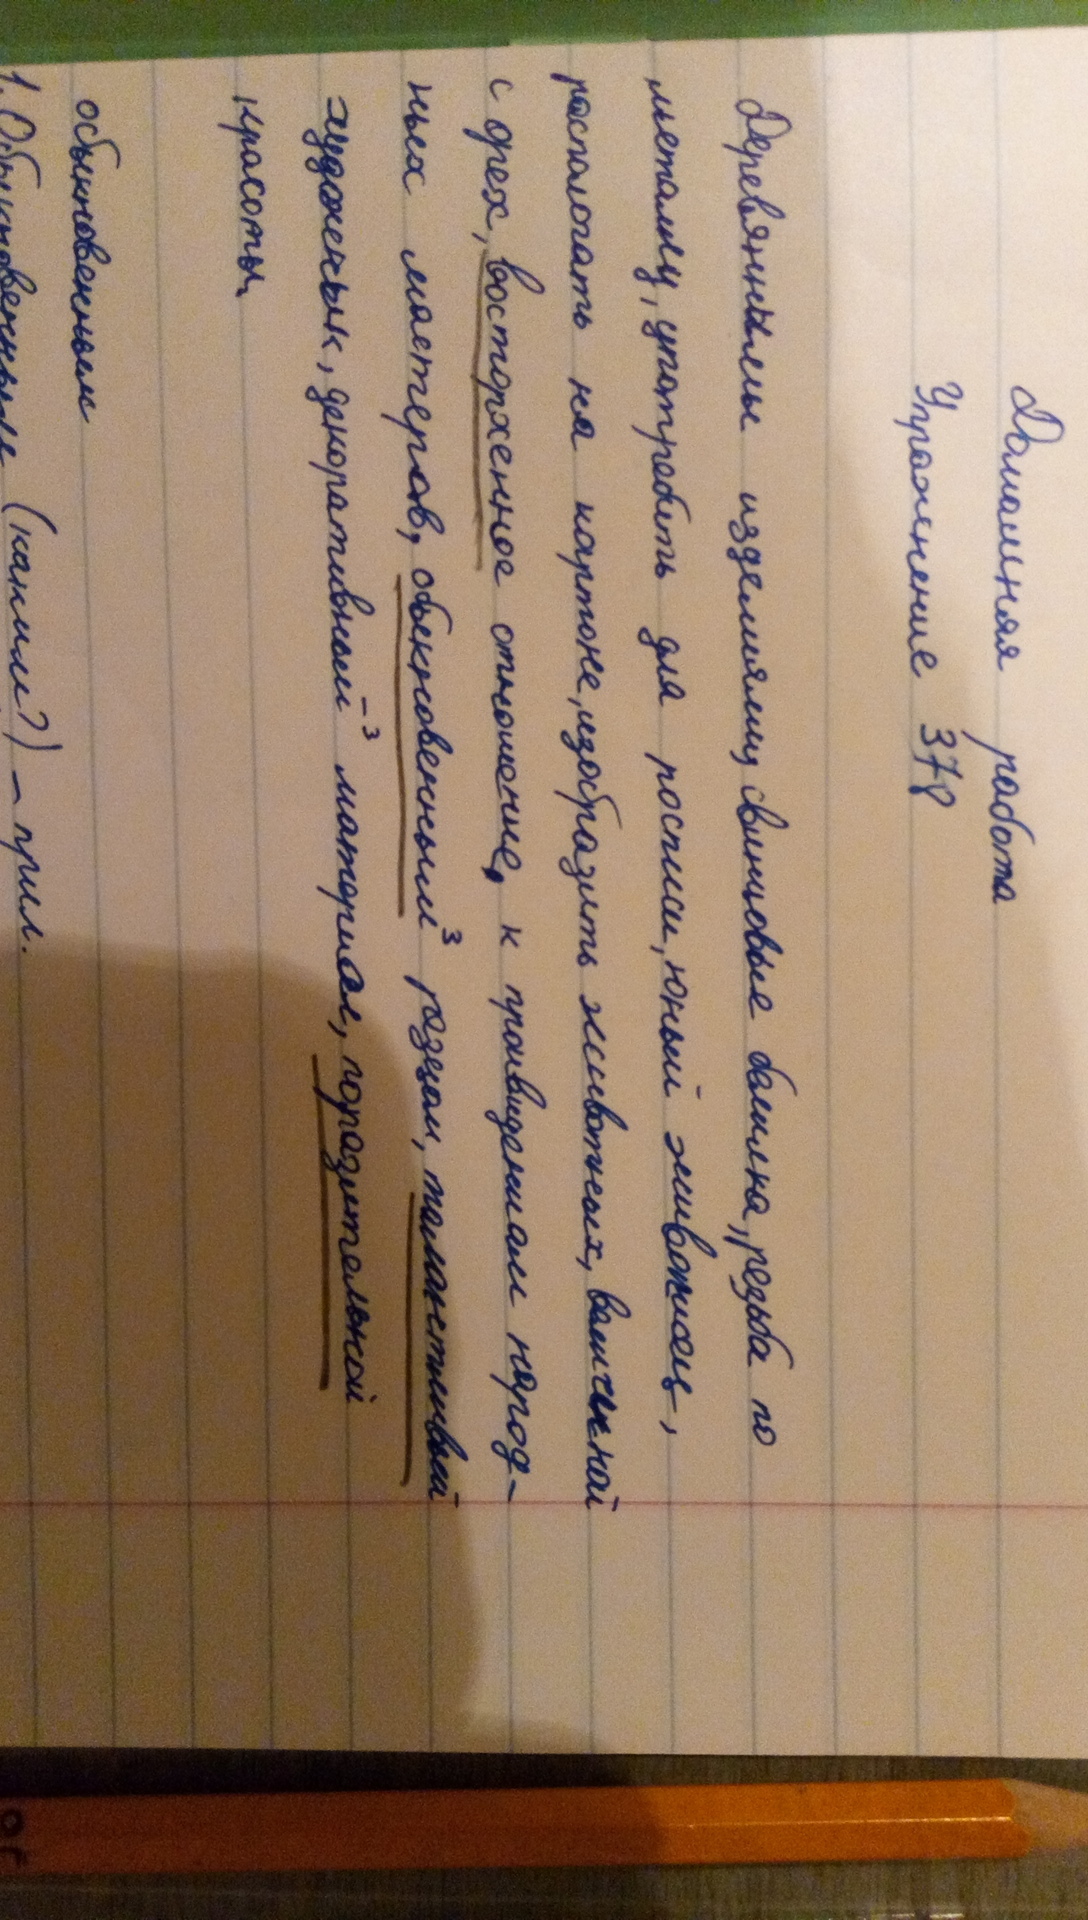 Домашняя работа
Упражнение 378
Деревянные изделиямиц свинцовые башмка, резьба по
металлу, упатребить для росписи, юный живописец,
роспологать на картоне, изобразить животных, величеной
с орех, восторженное отношение, к произвидениям народ-
ных мастеров, обыкновенным³ резцом, талантливый
художеньик, декоративный-³ материал, поразительной
красоты
обыкновенным
1. Обыкновенным (каким?) – прил.